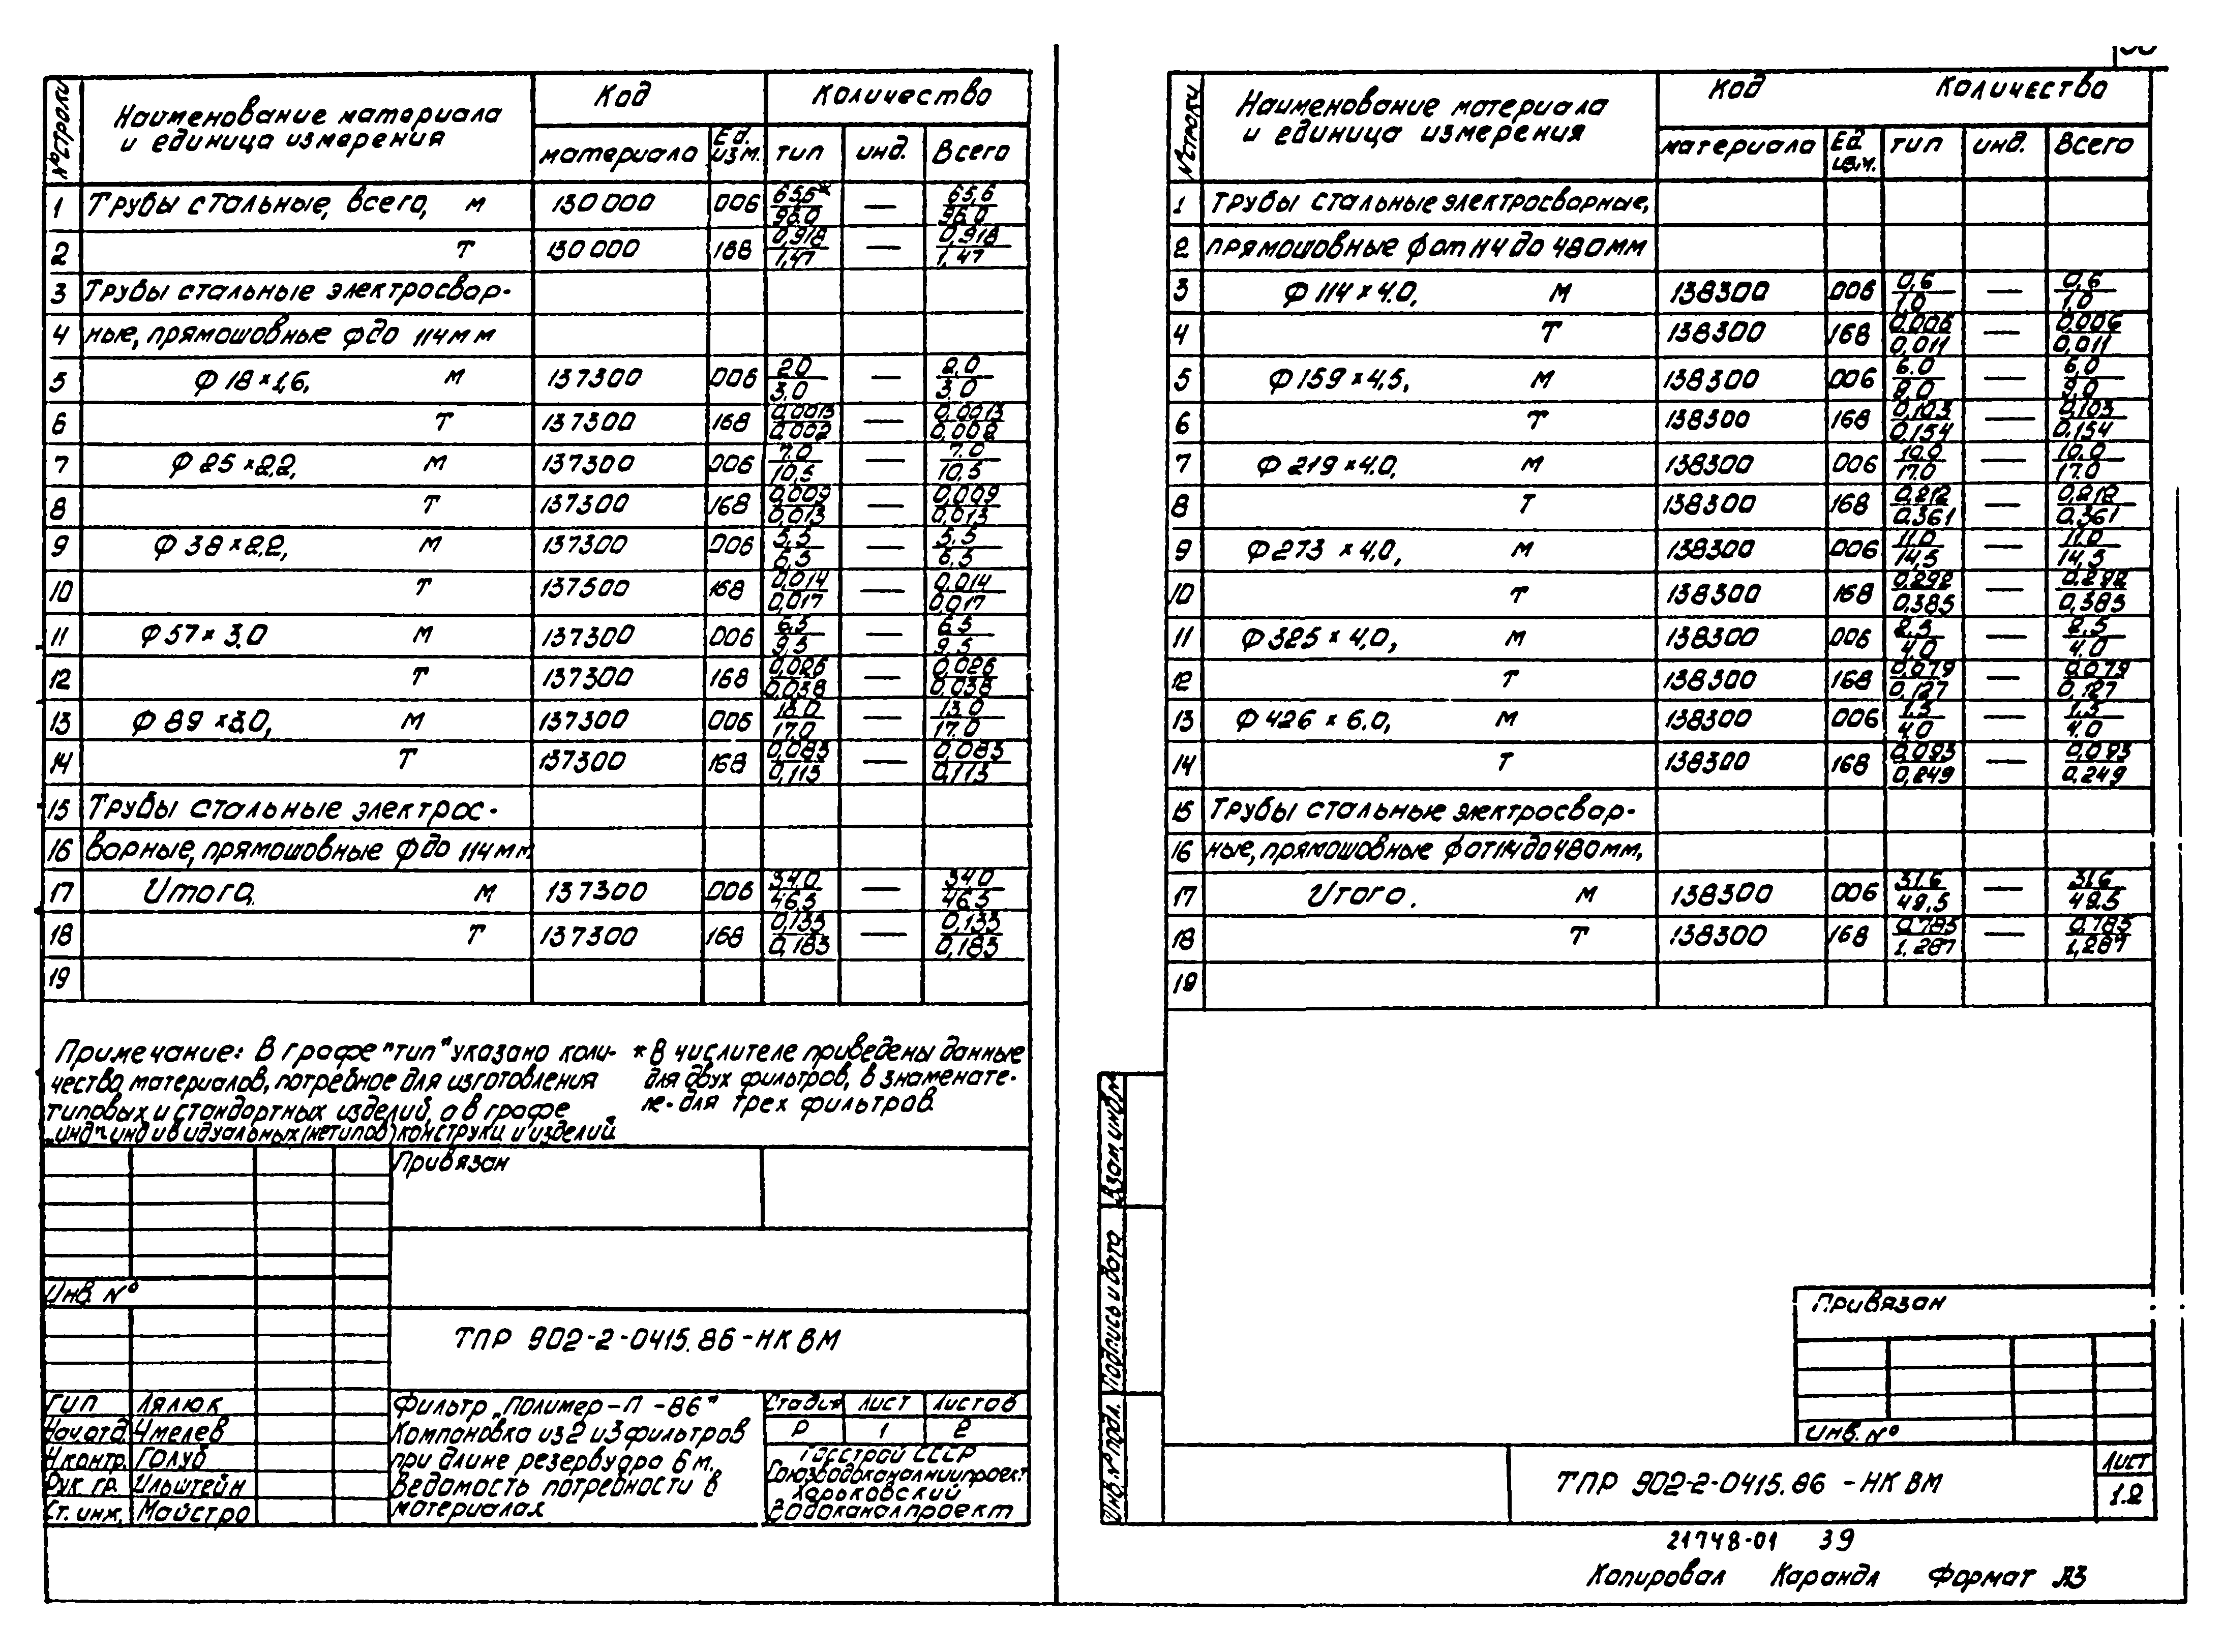 № строки
Наименование материала
и единица измерения
Код
Количество
материала
Ед.
изм.
тип
инд.
Всего
1 Трубы стальные, всего, м 130 000 006 65,6*/96.0 — 65,6/96.0
2 т 130 000 168 0,918/1,47 — 0,918/1,47
3 Трубы стальные электросвар-
4 ные, прямошовные ф до 114 мм
5 ф 18×1,6, м 137300 006 2.0/3.0 — 2,0/3.0
6 т 137300 168 0,0013/0,002 — 0,0013/0,002
7 ф 25×2,2, м 137300 006 7.0/10,5 — 7.0/10,5
8 т 137300 168 0,009/0,013 — 0,009/0,013
9 ф 38×2,2, м 137300 006 5,5/6,5 — 5,5/6,5
10 т 137300 168 0,014/0,017 — 0,014/0,017
11 ф 57×3,0 м 137300 006 6,5/9,5 — 6,5/9,5
12 т 137300 168 0,026/0,038 — 0,026/0,038
13 ф 89×3,0, м 137300 006 13.0/17.0 — 13.0/17.0
14 т 137300 168 0,083/0,113 — 0,083/0,113
15 Трубы стальные электрос-
16 ворные, прямошовные ф до 114 мм
17 Итого, м 137300 006 34.0/46.5 — 34.0/46.5
18 т 137300 168 0,133/0,183 — 0,133/0,183
19
Примечание: В графе "тип" указано коли-
чество материалов, потребное для изготовления
типовых и стандартных изделий, а в графе
"инд" индивидуальных (нетипов) конструкц и изделий.
* В числителе приведены данные
для двух фильтров, в знаменате-
ле- для трех фильтров.
Привязан
Инв. №
ТПР 902-2-0415.86-НК ВМ
ГИП Лялюк
Нач.отд. Чмелев
Н.контр. Голуб
Рук. гр. Ильштейн
Ст. инж. Майстро
Фильтр „Полимер-П-86"
Компоновка из 2 и 3 фильтров
при длине резервуара 6 м.
Ведомость потребности в
материалах
Стадия Лист Листов
Р 1 2
Госстрой СССР
Союзводоканалниипроект
Харьковский
Водоканалпроект
№ строки
Наименование материала
и единица измерения
Код
Количество
материала
Ед.
изм.
тип
инд.
Всего
1 Трубы стальные электросворные,
2 прямошовные ф от 114 до 480 мм
3 ф 114×4.0, м 138300 006 0,6/1,0 — 0,6/1,0
4 т 138300 168 0,006/0,011 — 0,006/0,011
5 ф 159×4,5, м 138300 006 6.0/9.0 — 6,0/9,0
6 т 138300 168 0,103/0,154 — 0,103/0,154
7 ф 219×4.0, м 138300 006 10.0/17.0 — 10.0/17.0
8 т 138300 168 0,212/0,361 — 0,212/0,361
9 ф 273×4,0, м 138300 006 11.0/14,5 — 11.0/14,5
10 т 138300 168 0,292/0,385 — 0,292/0,385
11 ф 325×4,0, м 138300 006 2,5/4.0 — 2,5/4.0
12 т 138300 168 0,079/0,127 — 0,079/0,127
13 ф 426×6.0, м 138300 006 1,5/4,0 — 1,5/4.0
14 т 138300 168 0,093/0,249 — 0,093/0,249
15 Трубы стальные электросвар-
16 ные, прямошовные ф от 114 до 480 мм,
17 Итого. м 138300 006 31.6/49.5 — 31.6/49.5
18 т 138300 168 0.785/1.287 — 0.785/1,287
19
Взам.инв.№
Подпись и дата
Инв. № подл.
Привязан
Инв. №
ТПР 902-2-0415.86-НК ВМ
Лист
1.2
21748-01 39
Копировал Карандл Формат А3